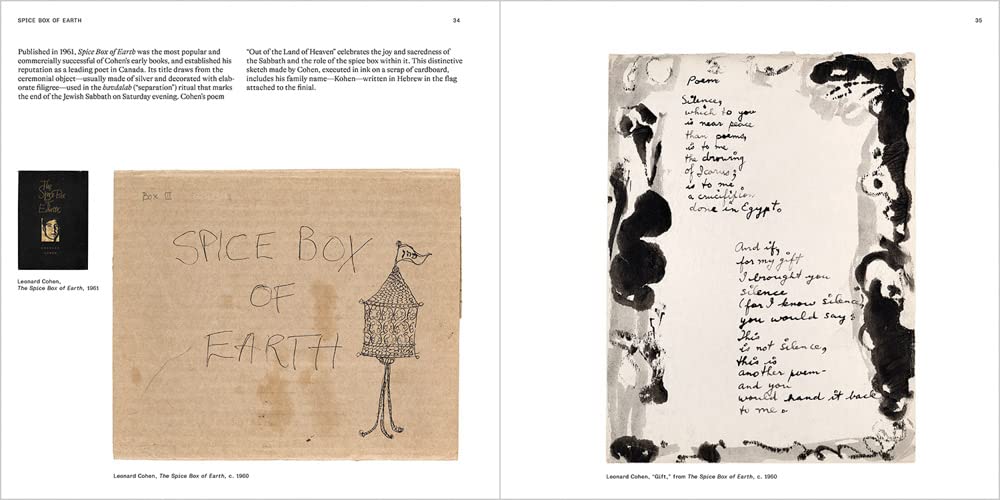 SPICE BOX OF EARTH
34
Published in 1961, Spice Box of Earth was the most popular and
commercially successful of Cohen's early books, and established his
reputation as a leading poet in Canada. Its title draws from the
ceremonial object—usually made of silver and decorated with elab-
orate filigree—used in the havdalah ("separation") ritual that marks
the end of the Jewish Sabbath on Saturday evening. Cohen's poem
"Out of the Land of Heaven" celebrates the joy and sacredness of
the Sabbath and the role of the spice box within it. This distinctive
sketch made by Cohen, executed in ink on a scrap of cardboard,
includes his family name—Kohen—written in Hebrew in the flag
attached to the finial.
The
Spice Box
of
Earth
Leonard Cohen,
The Spice Box of Earth, 1961
Box III
SPICE BOX
OF
EARTH
Leonard Cohen, The Spice Box of Earth, c. 1960
35
Poem
Silence,
which to you
is near peace
than poems,
is to me
the drowning
of Icarus;
is to me
a crucifixion
done in Egypt.
And if,
for my gift
I brought you
silence
(for I know silence)
you would say:
This
is not silence,
this is
another poem-
and you
would hand it back
to me.
Leonard Cohen, "Gift," from The Spice Box of Earth, c. 1960